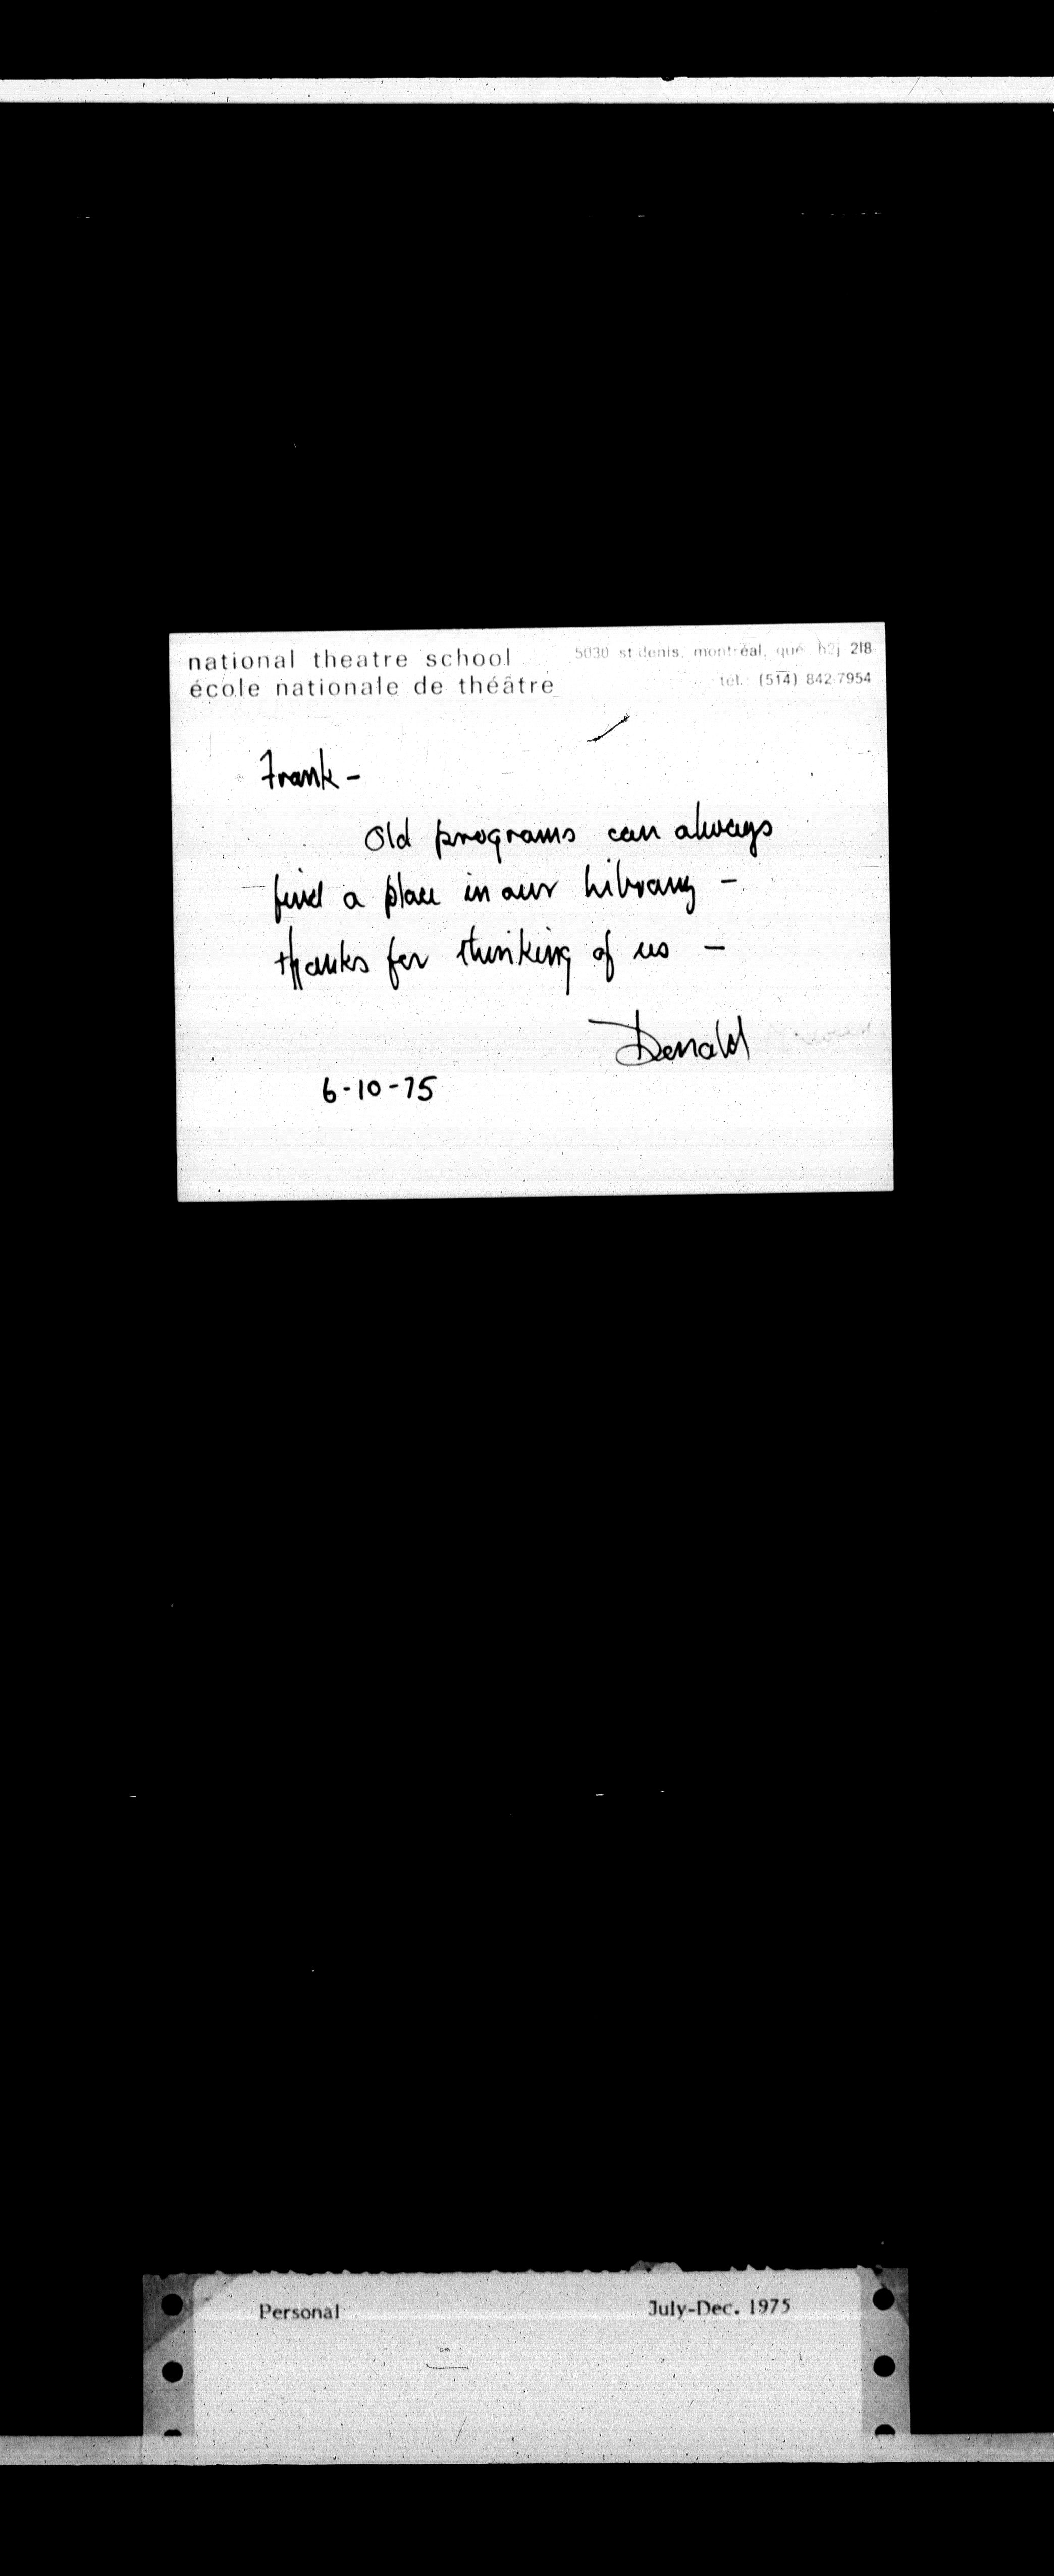 national theatre school
école nationale de théâtre
5030 st-denis, montréal, qué h2j 2l8
tél.: (514) 842-7954
Frank -
Old programs can always
find a place in our library -
thanks for thinking of us -
Donald
6-10-75
Personal
July-Dec. 1975